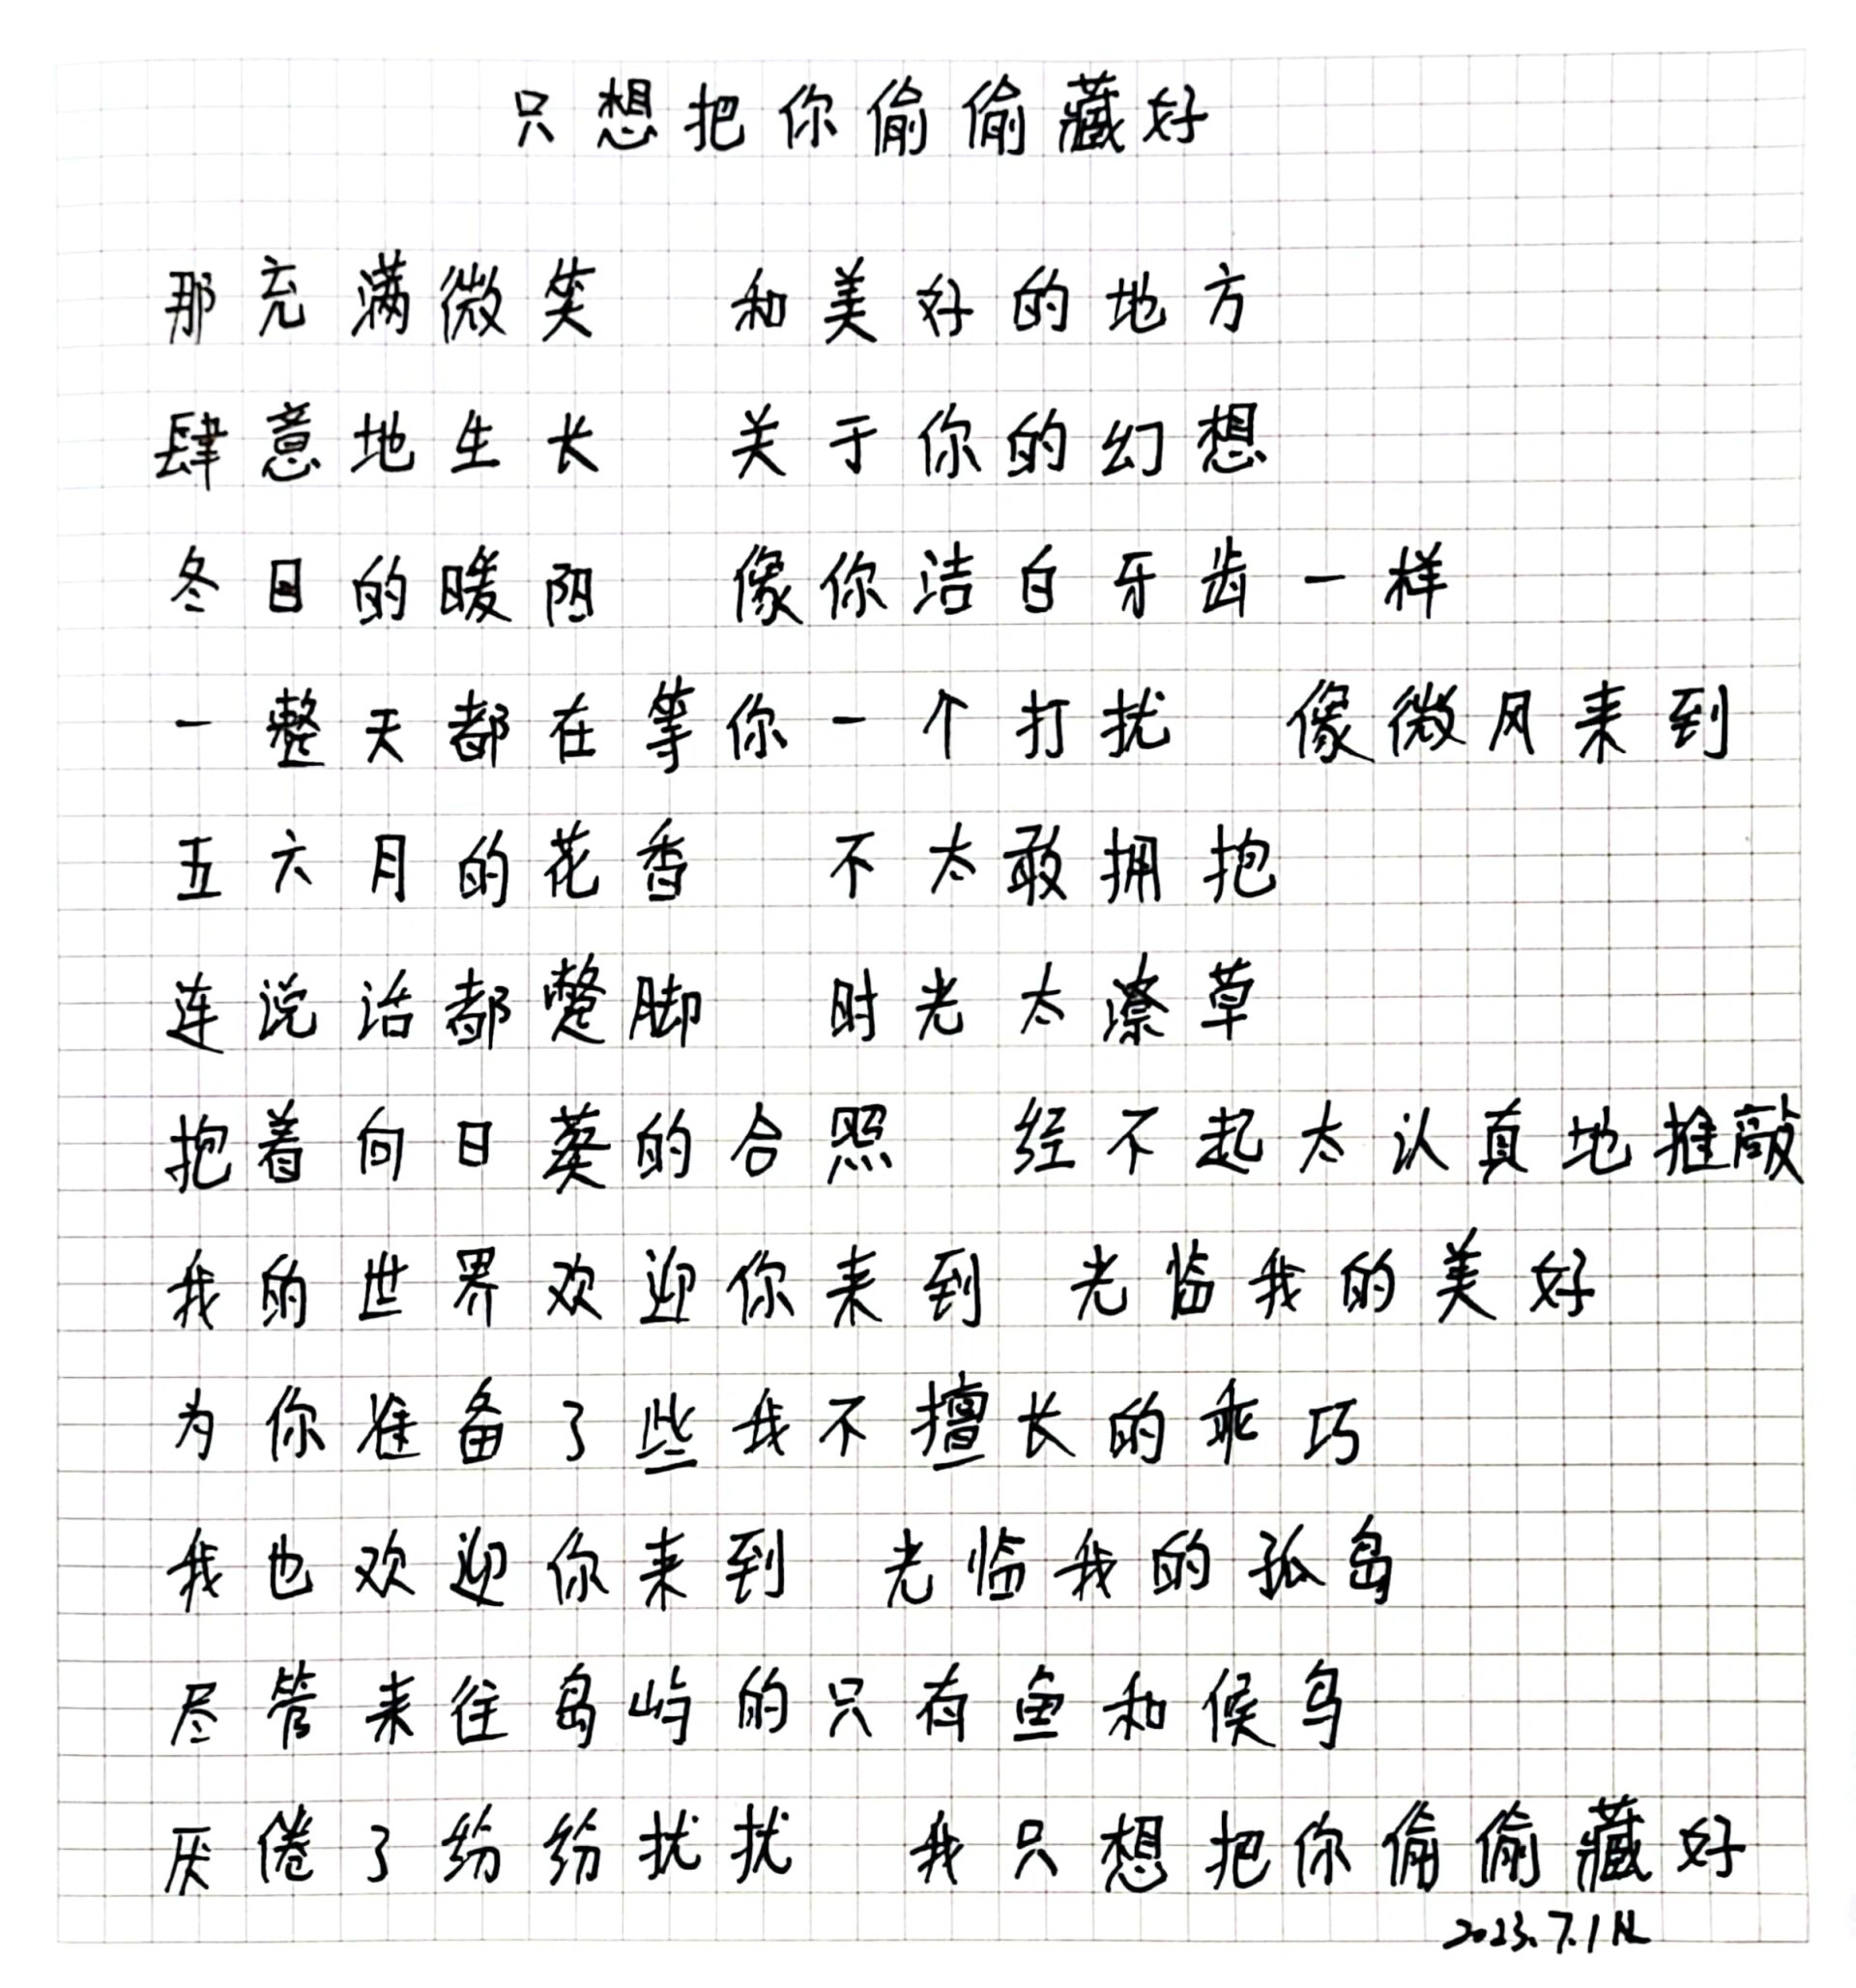 只想把你偷偷藏好
那充满微笑 和美好的地方
肆意地生长 关于你的幻想
冬日的暖阳 像你洁白牙齿一样
一整天都在等你一个打扰 像微风来到
五六月的花香 不太敢拥抱
连说话都蹩脚 时光太潦草
抱着向日葵的合照 经不起太认真地推敲
我的世界欢迎你来到 光临我的美好
为你准备了些我不擅长的乖巧
我也欢迎你来到 光临我的孤岛
尽管来往岛屿的只有鱼和候鸟
厌倦了纷纷扰扰 我只想把你偷偷藏好
2023.7.1